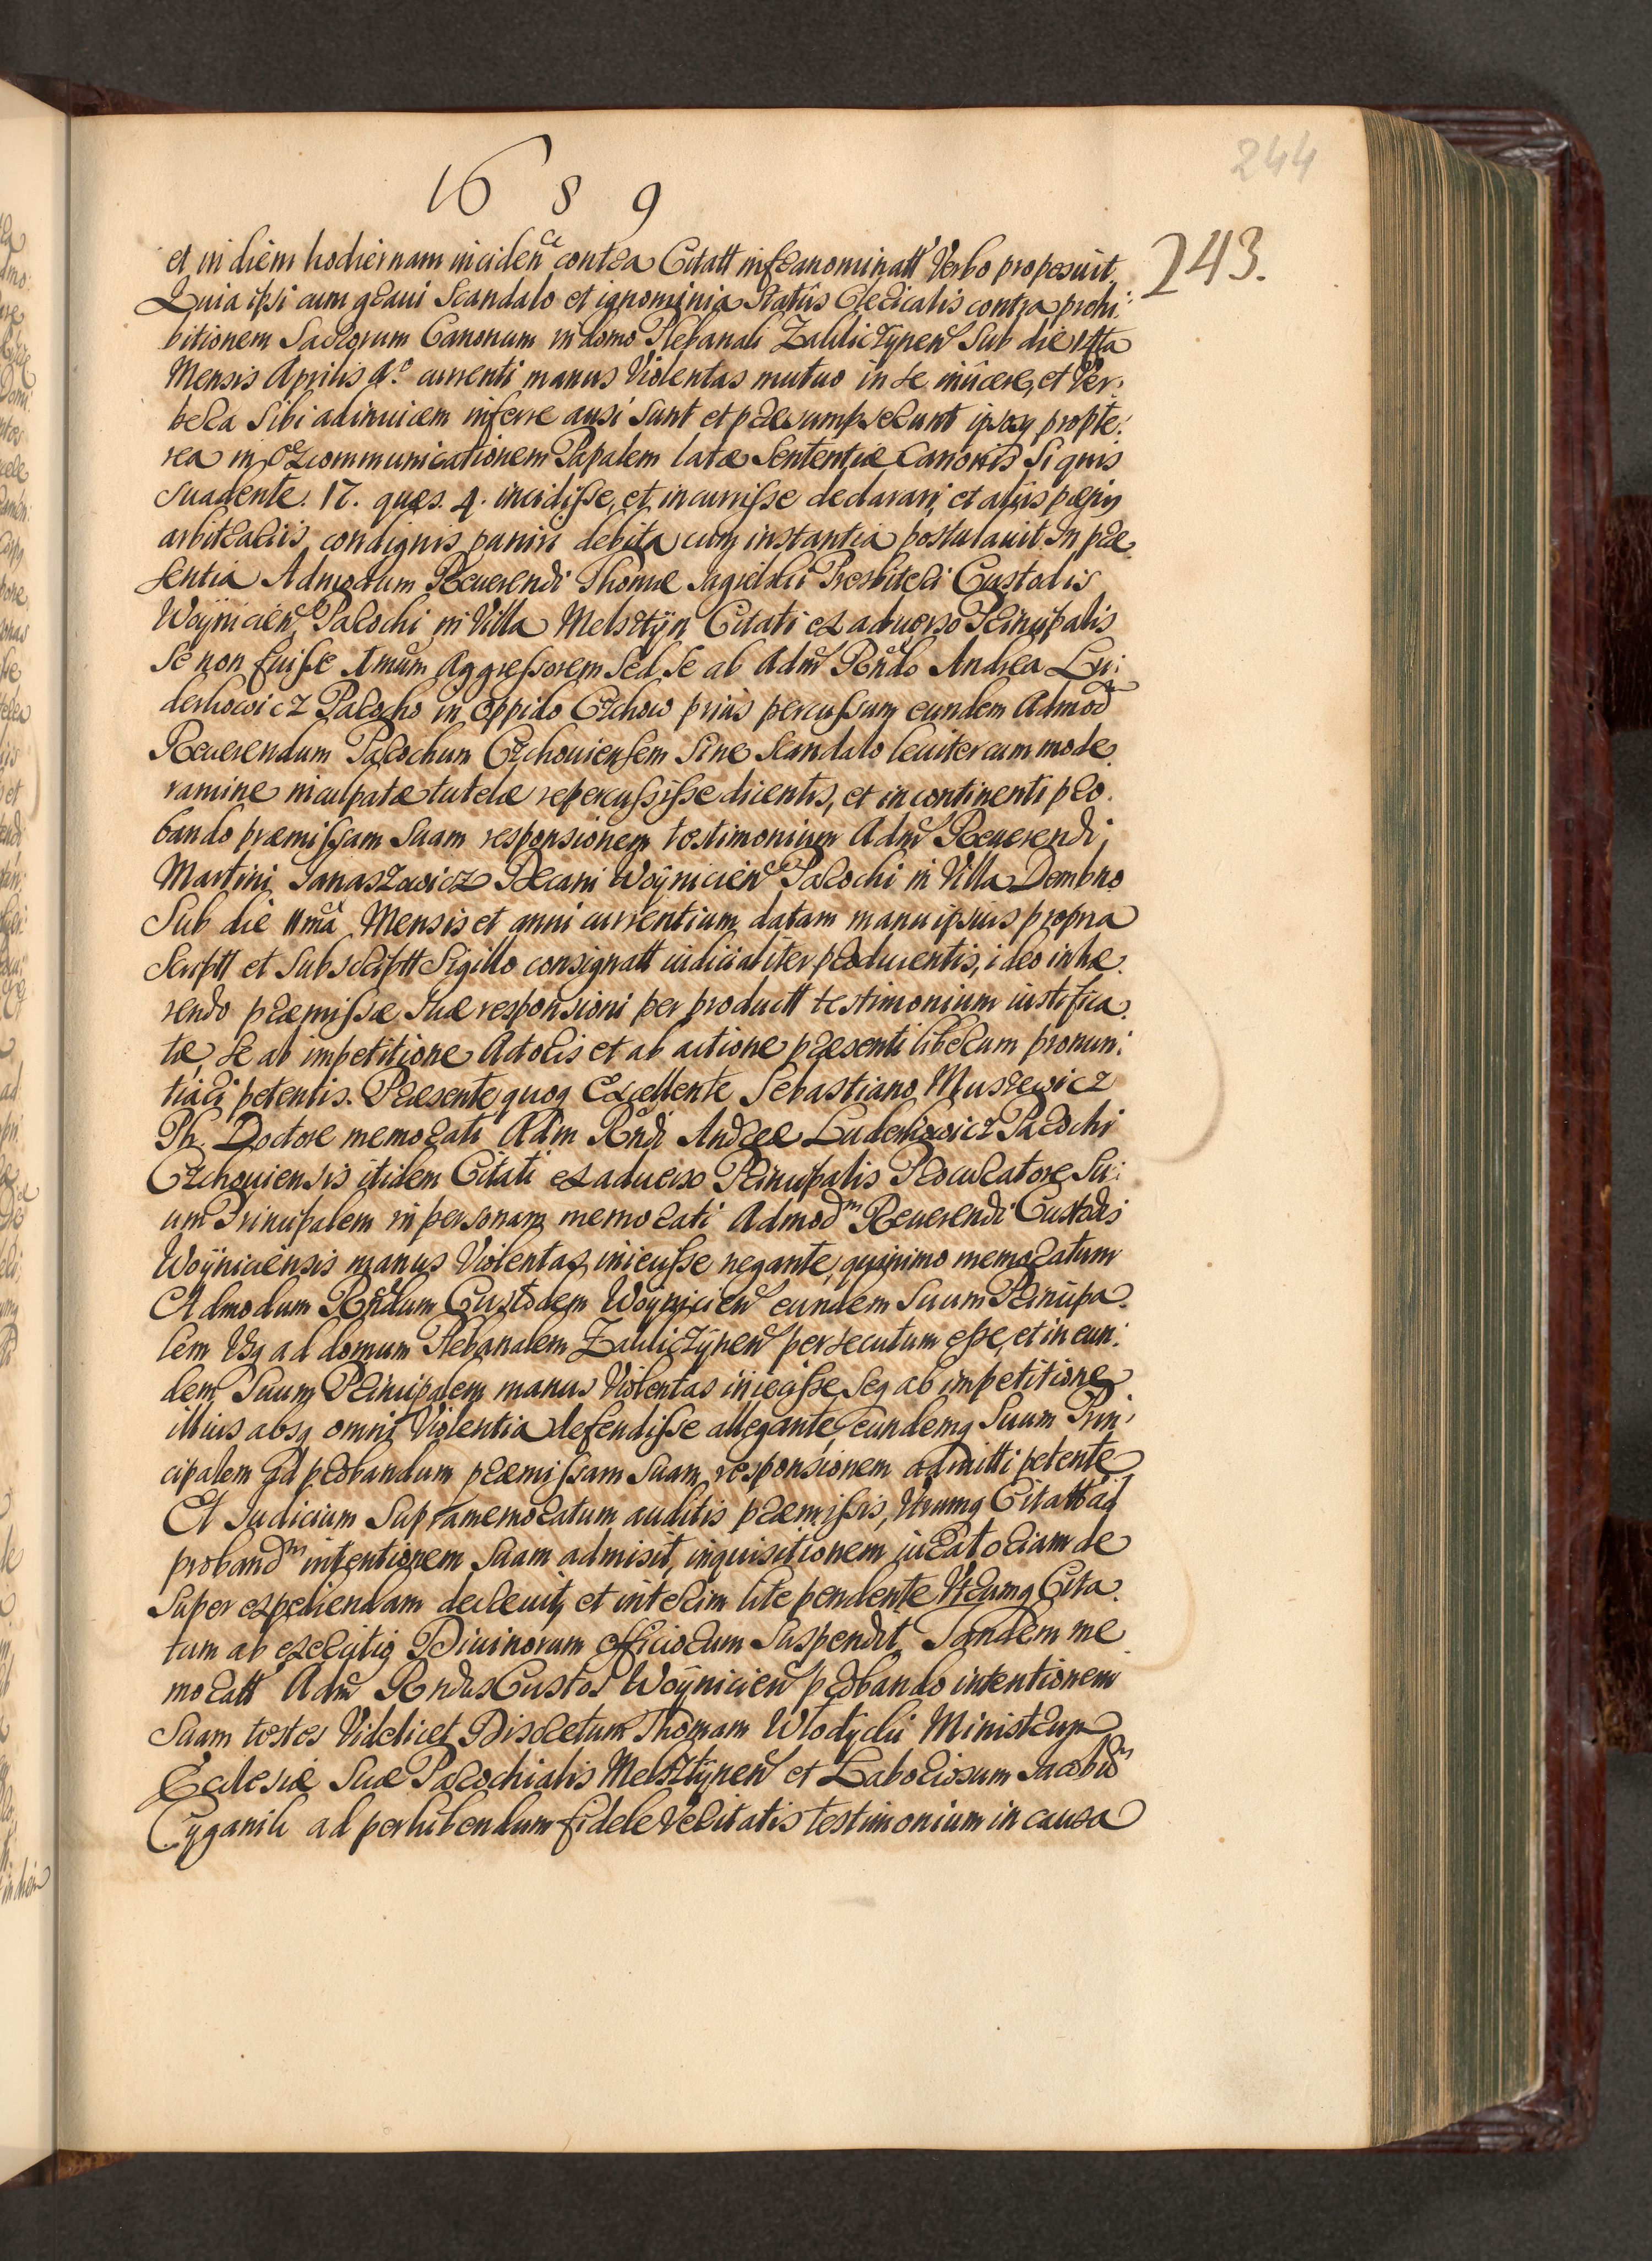 244
1689
243.
et in diem hodiernam inciden̄ contra Citatt infranominatt Verbo proposuit
Quia ipsi cum graui Scandalo et ignominia Status Clericalis contra prohi:
bitionem Sacrorum Canonum in domo Plebanali Zakliczÿnen̄ Sub die
Mensis Aprilis A.º currenti manus Violentas mutuo in se iniicere, et Ver:
bera Sibi adinuicem inferre ausi Sunt et præsumpserunt ipsosq propte:
rea in Excommunicationem Papalem latæ Sententiæ Canonis Si quis
suadente. 17. quæs. 4. incidisse, et incurrisse declarari, et aliis pænis
arbitrariis condignis puniri debita cum instantia postulauit. In præ
sentia Admodum Reuerendi Thomæ Jagielski Presbiteri Custodis
Woÿnicien̄ Parochi in Villa Melsztÿn Citati ex aduerso Principalis
Se non fuisse Imum Aggressorem Sed Se ab Adm̄ Rn̄do Andrea Lu:
derkowicz Parocho in oppido Czchow prius percussum eundem Admod̄
Reuerendum Parochum Czchouiensem Sine Scandalo leuiter cum mode
ramine inculpatæ tutelæ repercussisse dicentis, et in continenti pro
bando præmissam Suam responsionem testimonium Adm̄ Reuerendi
Martini Janaszowicz Decani Woÿnicien̄ Parochi in Villa Dembno
Sub die 11ma Mensis et anni currentium datam manu ipsius propria
Scriptt et Subscriptt Sigillo consignatt iudicialiter producentis, ideo inhæ
rendo præmissæ Suæ responsioni per productt testimonium iustifica
tæ, Se ab impetitione Actoris et ab actione præsenti liberum pronun:
tiari petentis. Præsente quoq Excellente Sebastiano Muszewicz
Ph. Doctore memorati Adm Rn̄di Andreæ Luderkowicz Parochi
Czchouiensis itidem Citati ex aduerso Principalis Procuratore Su:
um Principalem in personam memorati Admodm Reuerendi Custodis
Woÿniciensis manus Violentas iniecisse negante, quinimo memoratum
Admodum Rn̄dum Custodem Woÿnicien̄ eundem Suum Principa
lem Vsq ad domum Plebanalem Zakliczÿnen̄ persecutum esse, et in eun:
dem Suum Principalem manus Violentas iniecisse, Seq ab impetitione
illius absq omni Violentia defendisse allegante, eundemq Suum Prin:
cipalem ad probandum præmissam Suam responsionem admitti petente
Et Judicium Supramemoratum auditis præmissis, Vtrumq Citatt ad
probandm intentionem Suam admisit, inquisitionem iuratoriam de
super expediendam decreuit, et interim lite pendente Vtrumq Cita
tum ab exequtiõ Diuinorum officiorum Suspendit. Tandem me
moratt Adm̄ Rndus Custos Woÿnicien̄ probando intentionem
Suam testes Videlicet Discretum Thomam Wlodÿcki Ministrum
Ecclesiæ Suæ Parochialis Melsztÿnen̄ et Laboriosum Jacobum
Cÿganik ad perhibendum fidele Veritatis testimonium in causa